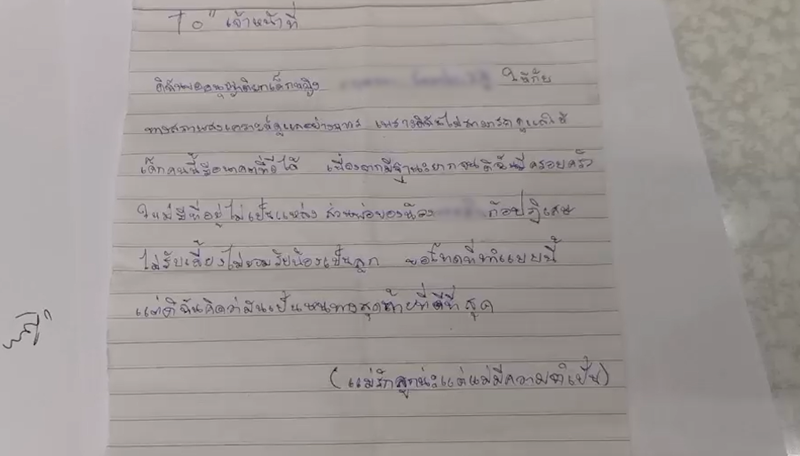 To" เจ้าหน้าที่
ดิฉันขออนุญาติยกเด็กหญิง ให้กับ
ทางสถานสงเคราะห์ดูแลอย่างถาวร เพราะดิฉันไม่สามารถดูแลให้
เด็กคนนี้มีอนาคตที่ดีได้ เนื่องจากมีฐานะยากจน ดิฉันมีครอบครัว
ใหม่มีที่อยู่ไม่เป็นแหล่ง ส่วนพ่อของน้อง ก้อปฎิเสธ
ไม่รับเลี้ยงไม่ยอมรับน้องเป็นลูก ขอโทดที่ทำแบบนี้
แต่ดิฉันคิดว่ามันเป็นหนทางสุดท้ายที่ดีที่สุด
(แม่รักลูกน่ะแต่แม่มีความจำเป็น)